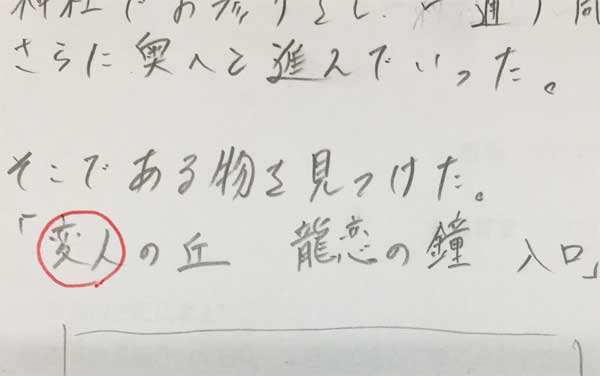 神社でお参りをし、一通り
さらに奥へと進んでいった。
そこである物を見つけた。
「変人の丘 龍恋の鐘 入口」